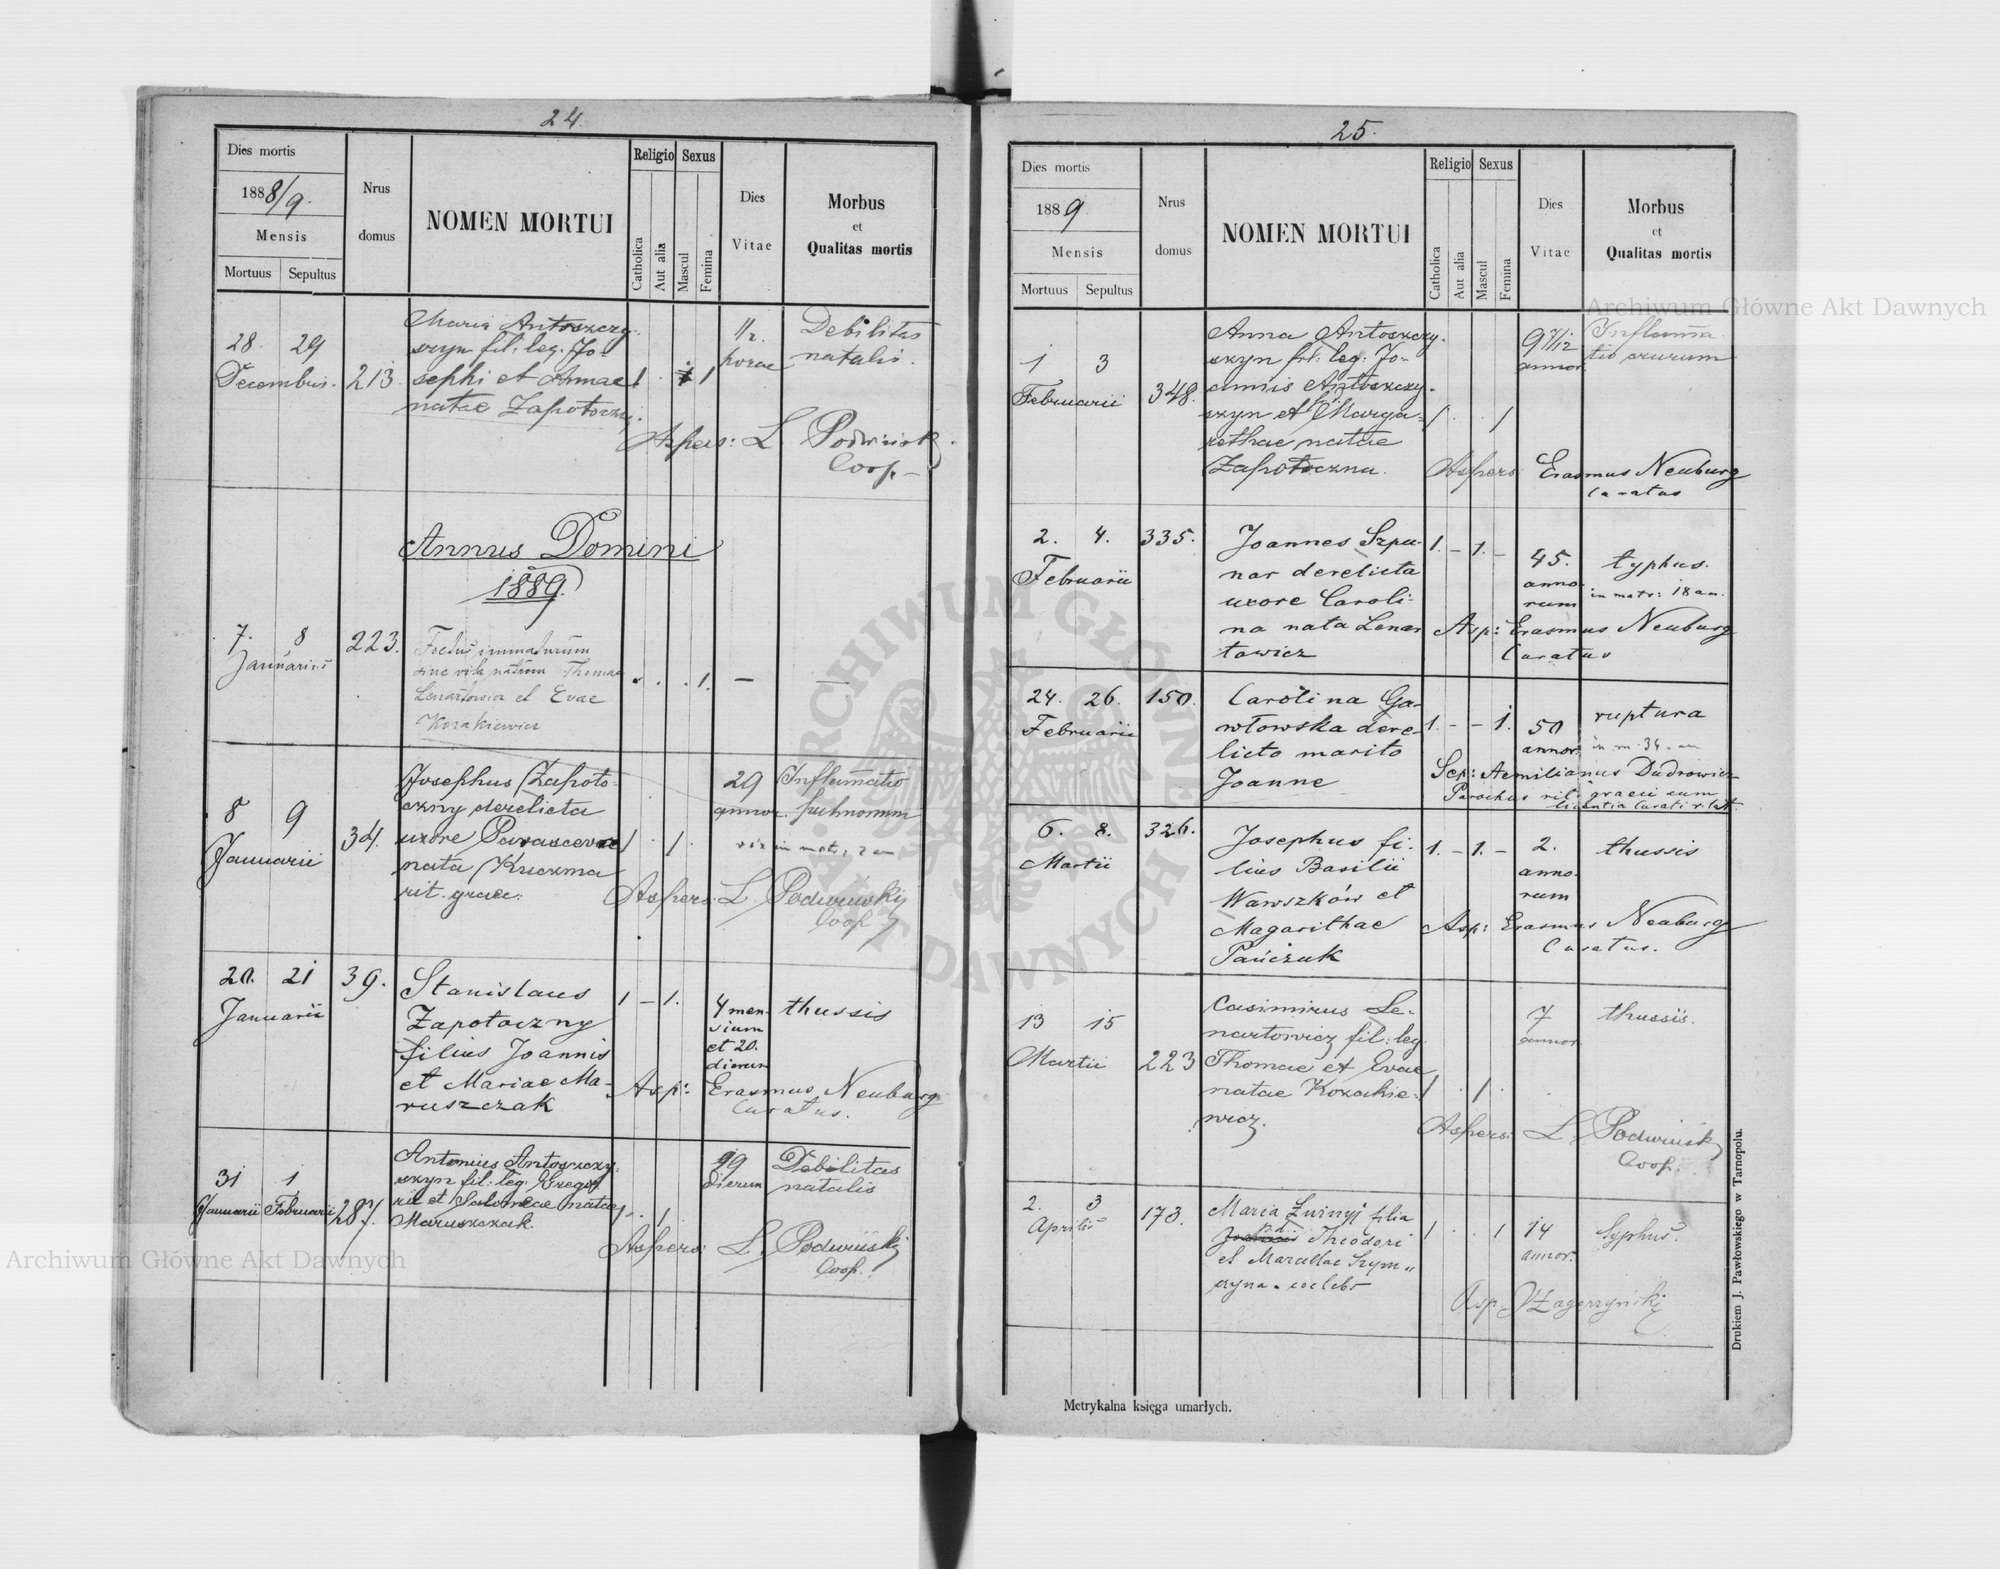 24.
Dies mortis
1888/9.
Mensis
Mortuus Sepultus
Nrus
domus
NOMEN MORTUI
Religio Sexus
Catholica
Aut alia
Mascul
Femina
Dies
Vitae
Morbus
et
Qualitas mortis
28. 29
Decembris. 213.
Maria Antoszczy-
szyn fil: leg. Jo-
sephi et Annae
natae Zapotoczny.
1 . 1
1/2
horae
Debilitas
natalis.
Aspers: L. Podwiński
Coop.
Annus Domini
1889.
7. 8
Januarius
223.
Foetus immaturum
sine vita natum Thomae
Lenartowicz et Evae
Kozakiewicz
. . . 1. — —
8 9
Januarii
34.
Josephus Zapoto-
czny derelicta
uxore Parasceva
nata Kuczma
rit. graec.
1 . 1 .
29
annor.
Inflamatio
pulmonum
vix in matr. 2 an
Aspers: L. Podwiński
Coop.
20. 21
Januarii
39.
Stanislaus
Zapotoczny
filius Joannis
et Mariae Ma-
ruszczak
1 — 1.
4 men-
sium
et 20.
dierum
thussis
Asp: Erasmus Neuburg
Curatus.
31 1
Januarii Februarii 287.
Antonius Antoszczy-
szyn fil: leg. Gregor
rii et Salomeae natae
Maruszczak.
1 . 1
29
dierum
Debilitas
natalis
Aspers: L. Podwiński
Coop.
25.
Dies mortis
1889.
Mensis
Mortuus Sepultus
Nrus
domus
NOMEN MORTUI
Religio Sexus
Catholica
Aut alia
Mascul
Femina
Dies
Vitae
Morbus
et
Qualitas mortis
1 3
Februarii
348.
Anna Antoszczy-
szyn fil: leg: Jo-
annis Antoszczy-
szyn et Marga-
rethae natae
Zapotoczna.
1 . . 1
9 7/12
annor.
Inflamma
tio crurum
Aspers: Erasmus Neuburg
Curatus
2. 4. 335.
Februarii
Joannes Szpu-
nar derelicta
uxore Caroli-
na nata Lenar
towicz
1. – 1. –
45.
anno-
rum
typhus.
in matr: 18 an.
Asp: Erasmus Neuburg
Curatus
24. 26. 150.
Februarii
Carolina Ga-
włowska dere-
licto marito
Joanne
1. – – 1.
50
annor.
ruptura
in m. 34. an
Sep: Aemilianus Dudrowicz
Parochus rit. graeci cum
licentia Curati r. lat.
6. 8. 326.
Martii
Josephus fi-
lius Basilii
Wawszków et
Magarithae
Pańczuk
1. – 1. –
2.
anno-
rum
thussis
Asp: Erasmus Neuburg
Curatus.
13 15
Martii 223
Casimirus Le-
nartowicz fil: leg.
Thomae et Evae
natae Kozakie-
wicz.
1 . 1 .
7
annor.
thussis.
Aspers: L. Podwiński
Coop.
2. 3
Aprilis
173.
Maria Zwinyj filia
Theodori
et Marcellae Szym-
czyna. coelebs
1 . . 1
14
annor.
Typhus.
Asp. Zagorzyński
Metrykalna księga umarłych.
Drukiem J. Pawłowskiego w Tarnopolu.
Archiwum Główne Akt Dawnych
Archiwum Główne Akt Dawnych
ARCHIWUM GŁÓWNE AKT DAWNYCH